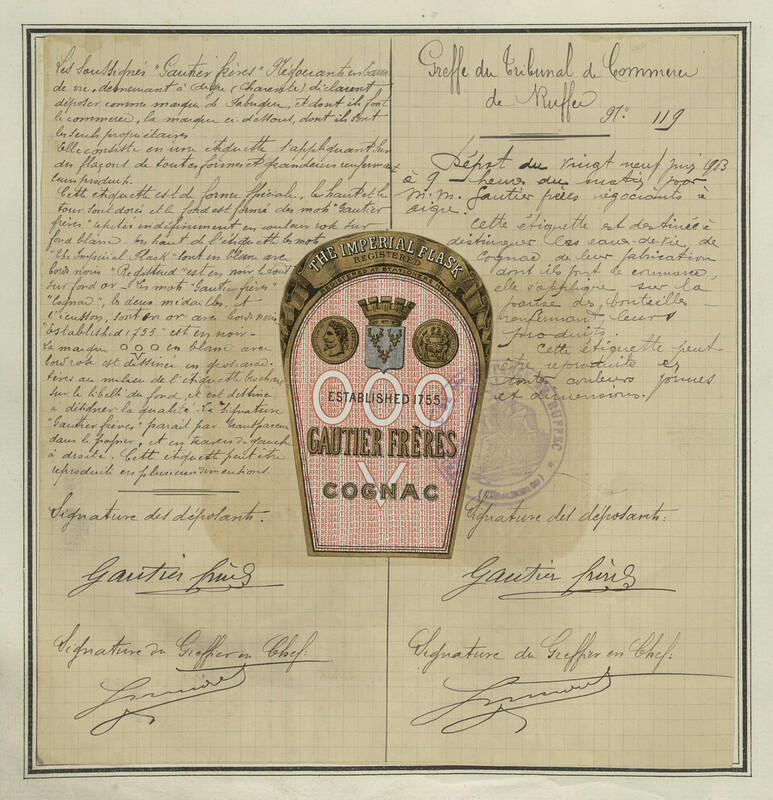 Les Soussignés "Gautier frères" Négociants en eaux
de vie, demeurant à Aigre (Charente) déclarent
déposer comme marque de Fabrique, et dont ils font
le commerce, la marque ci dessous, dont ils sont
les seuls propriétaires
Elle consiste en une étiquette s'appliquant sur
des flacons de toutes formes et grandeurs renfermant
leurs produits.
Cette étiquette est de forme spéciale, le haut et le
tour sont dorés et le fond est formé des mots "Gautier
frères" répétés indéfiniment en couleur rose sur
fond blanc. En haut de l'étiquette les mots
"The Imperial Flask" sont en blanc avec
bords noirs "Registered" est en noir le tout
sur fond or - Les mots "Gautier frères"
"Cognac", les deux médailles et
l'écusson, sont en or avec bords noirs
"established 1755" est en noir -
La marque OOO en blanc avec
V
bord rose est dessinée en gros carac
tères au milieu de l'étiquette
sur le libellé du fond, et est destinée
à désigner la qualité. La Signature
"Gautier frères" paraît par transparence
dans le papier, et en travers de gauche
à droite. Cette étiquette peut être
reproduite en plusieurs dimentions.
Signature des déposants.
Gautier frères
Signature du Greffier en Chef:
Greffe du Tribunal de Commerce
de Ruffec
N°. 119
Dépôt du vingt neuf 1903
à 9 heures du matin par
M.M. Gautier frères négociants à
Aigre.
Cette étiquette est destinée à
distinguer les eaux-de-vie de
Cognac de leur fabrication
dont ils font le commerce
elle s'applique sur la
panse des bouteilles
renfermant leurs
produits.
Cette étiquette peut
être reproduite en
toutes couleurs formes
et dimensions.
Signature des déposants:
Gautier frères
Signature du Greffier en Chef:
THE IMPERIAL FLASK
REGISTERED
REGISTERED AT STATIONERS HALL
OOO
ESTABLISHED 1755
GAUTIER FRÈRES
V
COGNAC
RUFFEC